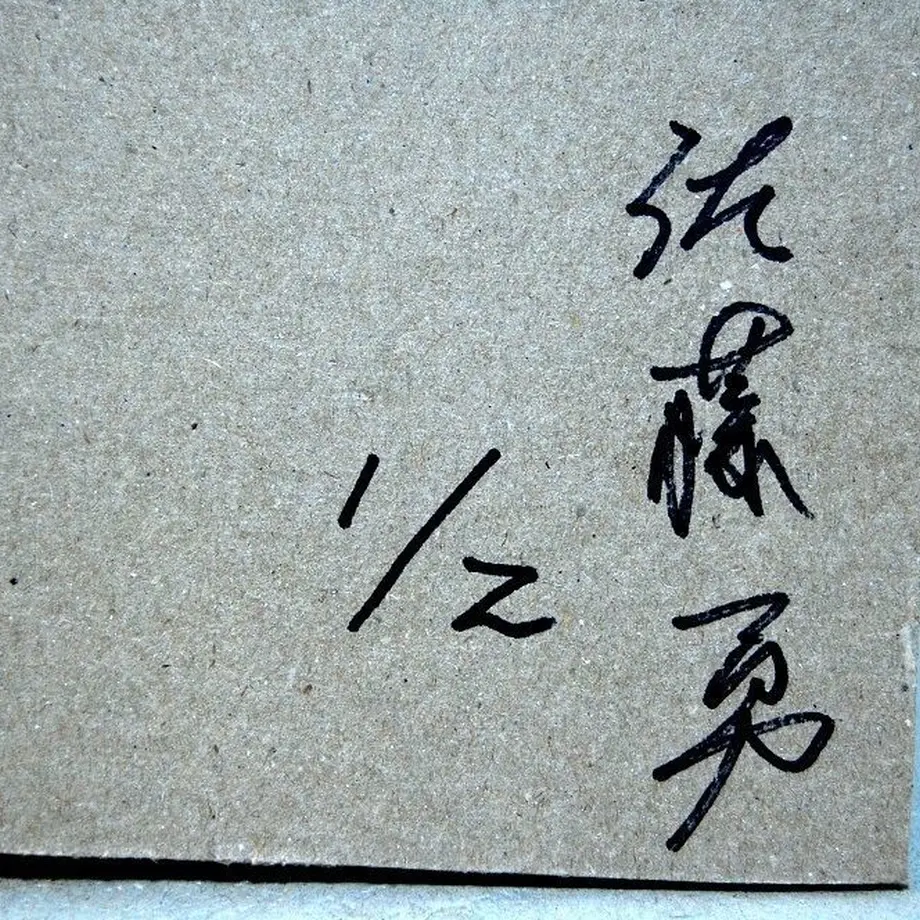 佐藤勇
1/2